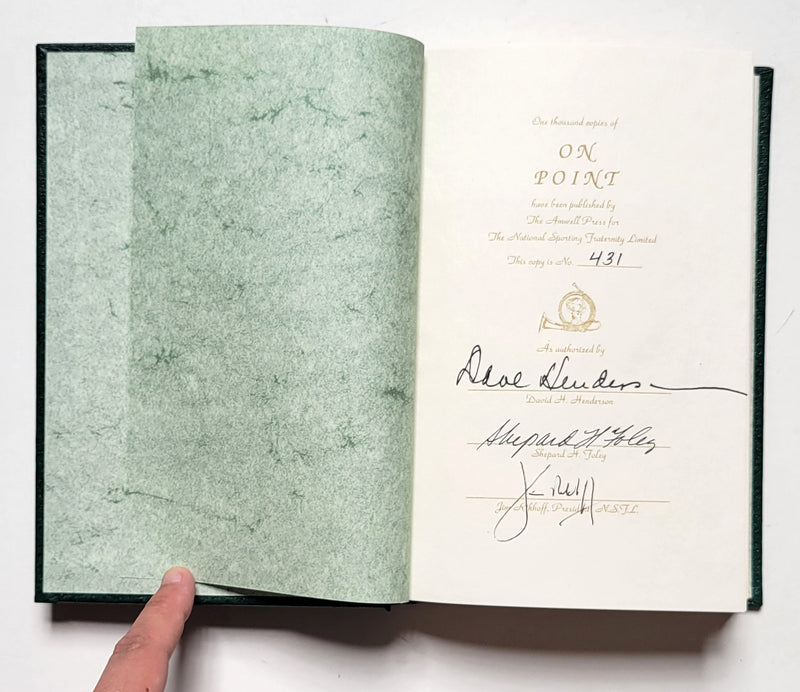 One thousand copies of
ON
POINT
have been published by
The Amwell Press for
The National Sporting Fraternity Limited
This copy is No. 431
As authorized by
Dave Henderson
David H. Henderson
Shepard H Foley
Shepard H. Foley
Jim
Jim Rikhoff, President N.S.F.L.